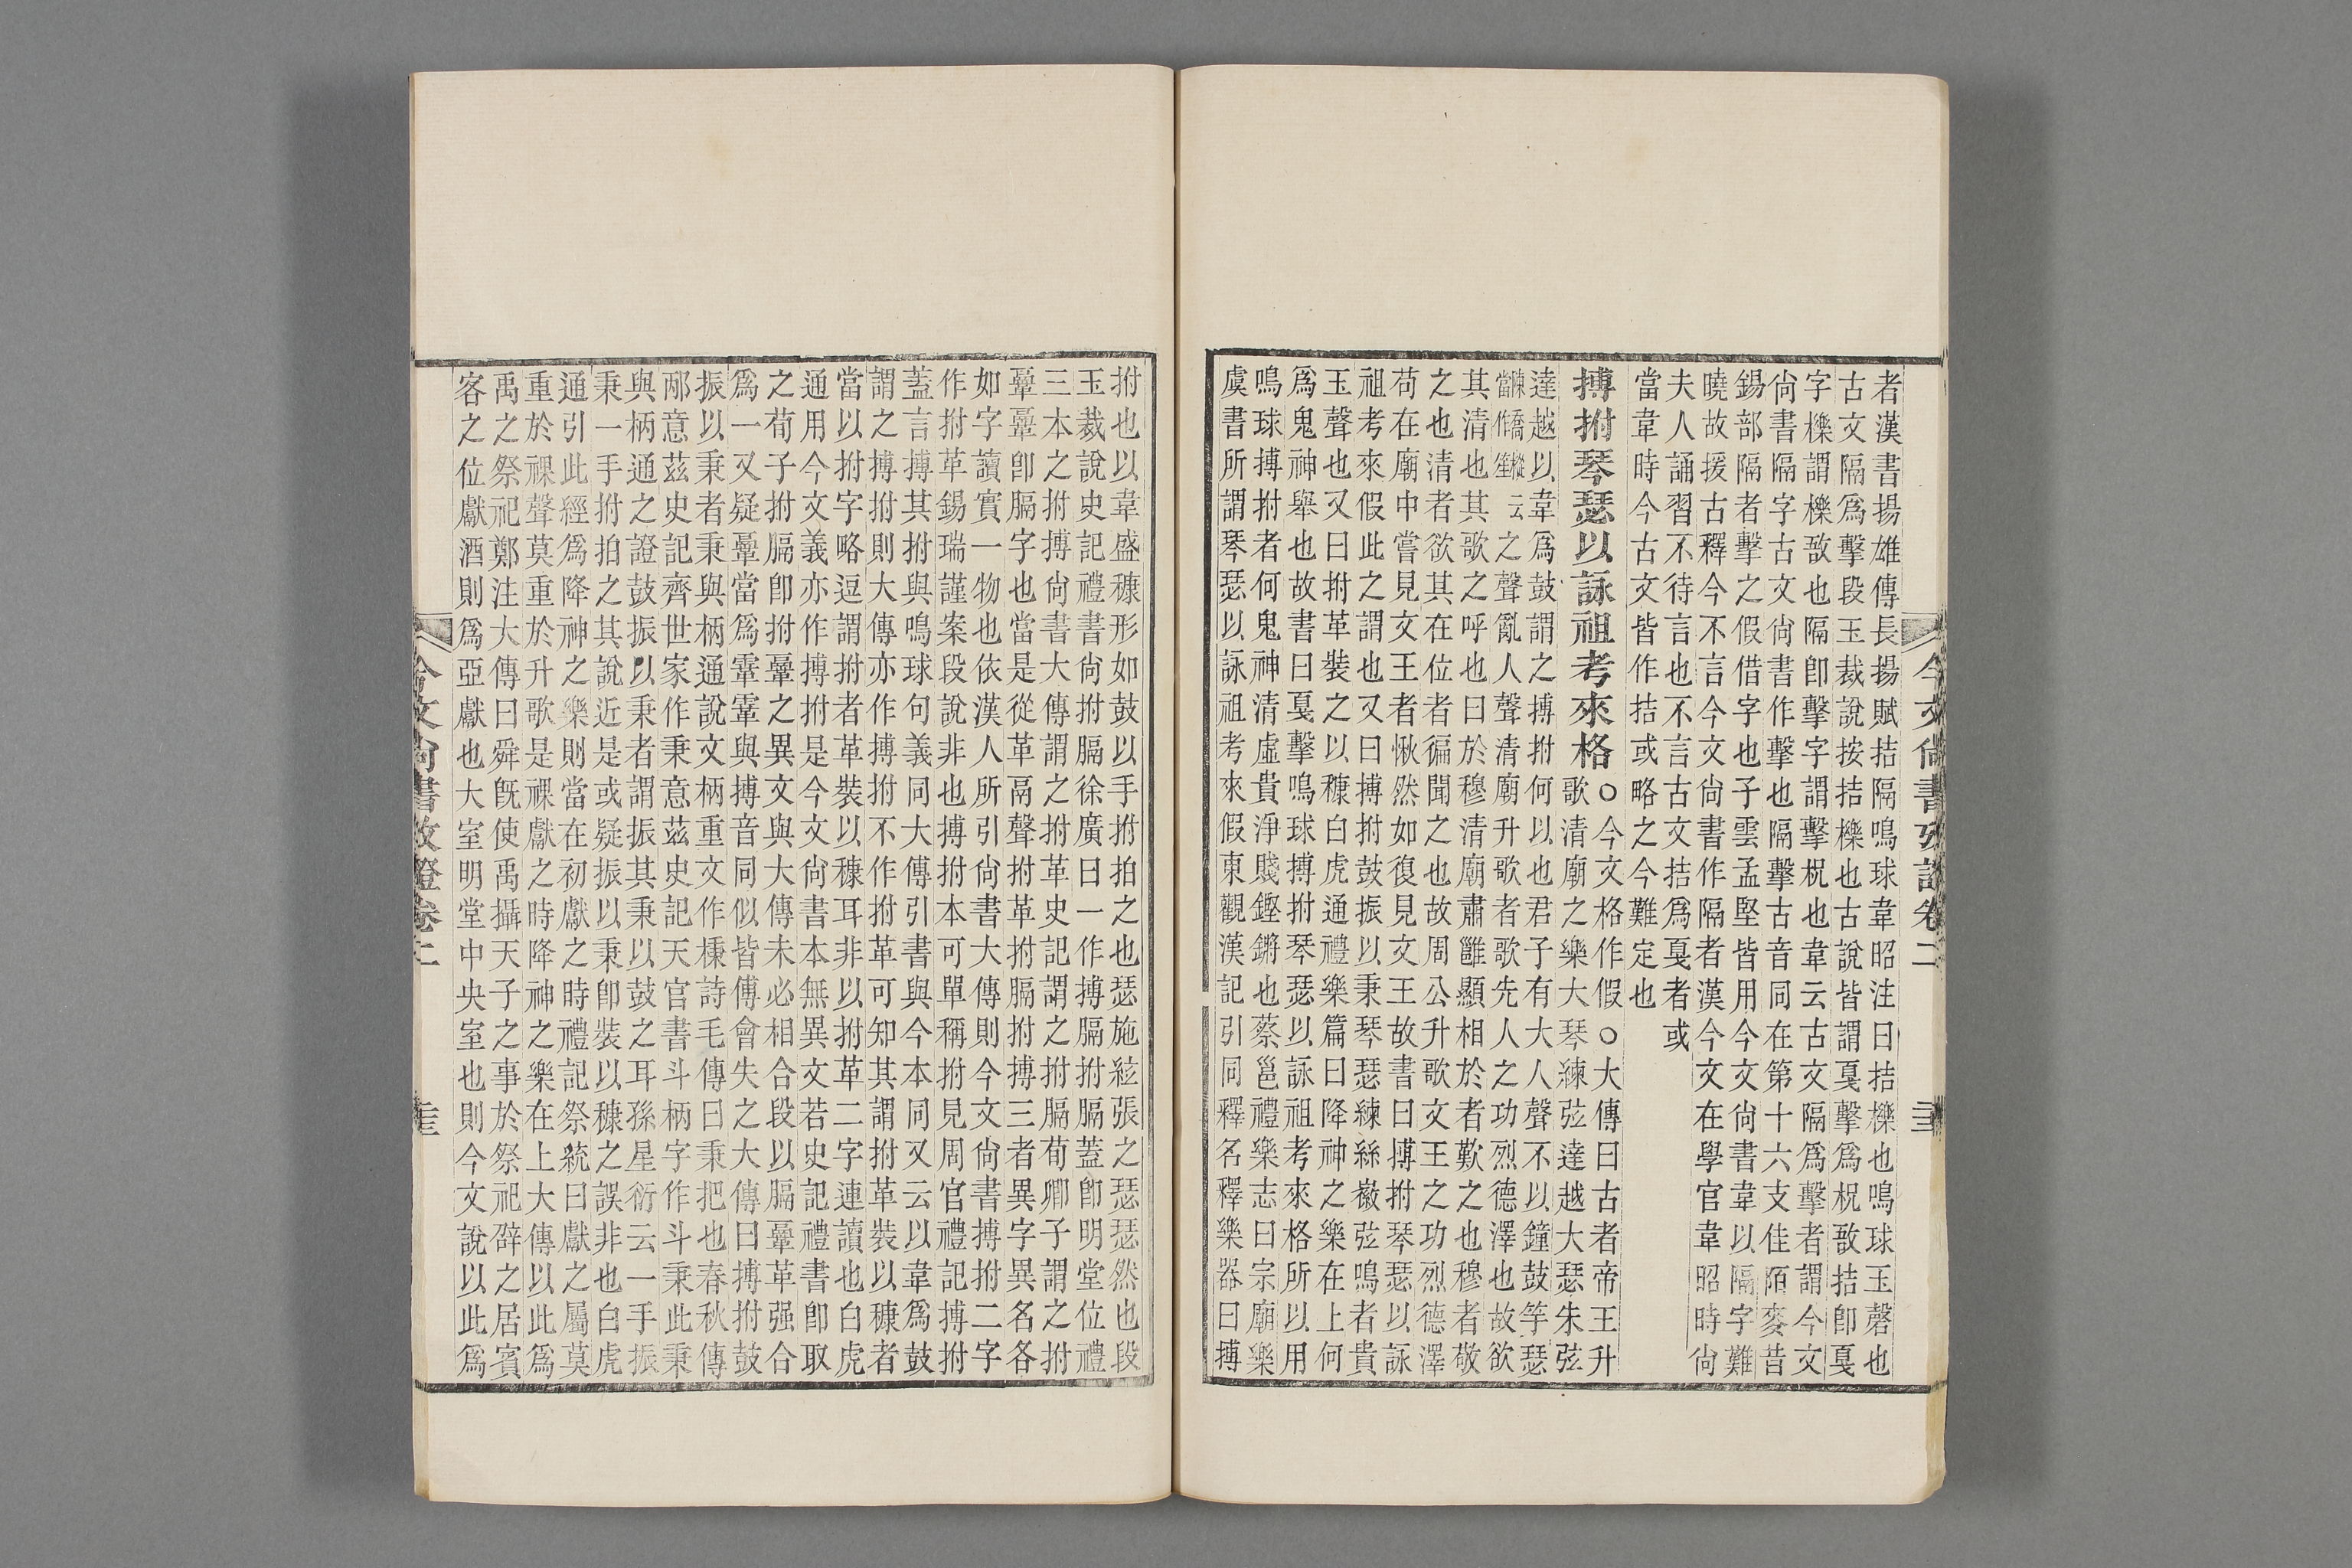 者漢書揚雄傳長揚賦拮隔鳴球韋昭注曰拮櫟也鳴球玉磬也
古文隔爲擊段玉裁說按拮櫟也古說皆謂戛擊爲柷敔拮卽戛
字櫟謂櫟敔也隔卽擊字謂擊柷也韋云古文隔爲擊者謂今文
尙書隔字古文尙書作擊也隔擊古音同在第十六支佳陌麥昔
錫部隔者擊之假借字也子雲孟堅皆用今文尙書韋以隔字難
曉故援古釋今不言今文尙書作隔者漢今文在學官韋昭時尙
夫人誦習不待言也不言古文拮爲戛者或
當韋時今古文皆作拮或略之今難定也
搏拊琴瑟以詠祖考來格○今文格作假○大傳曰古者帝王升
歌淸廟之樂大琴練弦達越大瑟朱弦
達越以韋爲鼓謂之搏拊何以也君子有大人聲不以鐘鼓竽瑟
陳喬樅云當作笙之聲亂人聲淸廟升歌者歌先人之功烈德澤也故欲
其淸也其歌之呼也曰於穆淸廟肅雝顯相於者歎之也穆者敬
之也淸者欲其在位者徧聞之也故周公升歌文王之功烈德澤
苟在廟中嘗見文王者愀然如復見文王故書曰搏拊琴瑟以詠
祖考來假此之謂也又曰搏拊鼓振以秉琴瑟練絲徽弦鳴者貴
玉聲也又曰拊革裝之以穅白虎通禮樂篇曰降神之樂在上何
爲鬼神舉也故書曰戛擊鳴球搏拊琴瑟以詠祖考來格所以用
鳴球搏拊者何鬼神淸虛貴淨賤鏗鏘也蔡邕禮樂志曰宗廟樂
虞書所謂琴瑟以詠祖考來假東觀漢記引同釋名釋樂器曰搏
今文尙書攷證卷二
拊也以韋盛穅形如鼓以手拊拍之也瑟施絃張之瑟瑟然也段
玉裁說史記禮書尙拊膈徐廣曰一作搏膈拊膈蓋卽明堂位禮
三本之拊搏尙書大傳謂之拊革史記謂之拊膈荀卿子謂之拊
鞷鞷卽膈字也當是從革鬲聲拊革拊膈拊搏三者異字異名各
如字讀實一物也依漢人所引尙書大傳則今文尙書搏拊二字
作拊革錫瑞謹案段說非也搏拊本可單稱拊見周官禮記搏拊
蓋言搏其拊與鳴球句義同大傳引書與今本同又云以韋爲鼓
謂之搏拊則大傳亦作搏拊不作拊革可知其謂拊革裝以穅者
當以拊字略逗謂拊者革裝以穅耳非以拊革二字連讀也白虎
通用今文義亦作搏拊是今文尙書本無異文若史記禮書卽取
之荀子拊膈卽拊鞷之異文與大傳未必相合段以膈鞷革强合
爲一又疑鞷當爲鞷鞷與搏音同似皆傅會失之大傳曰搏拊鼓
振以秉者秉與柄通說文柄重文作棅詩毛傳曰秉把也春秋傳
邴意茲史記齊世家作秉意茲史記天官書斗柄字作斗秉此秉
與柄通之證鼓振以秉者謂振其秉以鼓之耳孫星衍云一手振
秉一手拊拍之其說近是或疑振以秉卽裝以穅之誤非也白虎
通引此經爲降神之樂則當在初獻之時禮記祭統曰獻之屬莫
重於祼聲莫重於升歌是祼獻之時降神之樂在上大傳以此爲
禹之祭祀鄭注大傳曰舜旣使禹攝天子之事於祭祀辟之居賓
客之位獻酒則爲亞獻也大室明堂中央室也則今文說以此爲
今文尙書攷證卷二